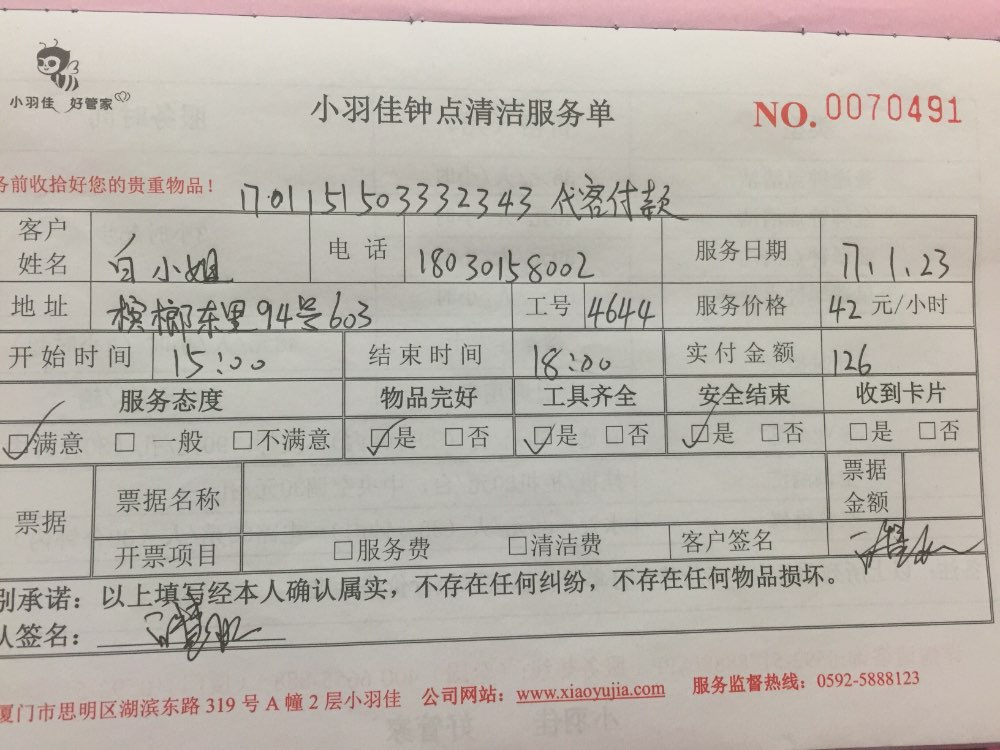 小羽佳 好管家
小羽佳钟点清洁服务单
NO. 0070491
务前收拾好您的贵重物品！
1701151503332343 代客付款
客户姓名 白小姐 电话 18030158002 服务日期 17.1.23
地址 槟榔东里94号603 工号 4644 服务价格 42 元/小时
开始时间 15:00 结束时间 18:00 实付金额 126
服务态度 物品完好 工具齐全 安全结束 收到卡片
☑满意 □一般 □不满意 ☑是 □否 ☑是 □否 ☑是 □否 □是 □否
票据 票据名称 票据金额
开票项目 □服务费 □清洁费 客户签名
别承诺：以上填写经本人确认属实，不存在任何纠纷，不存在任何物品损坏。
人签名：
厦门市思明区湖滨东路 319 号 A 幢 2 层小羽佳 公司网站：www.xiaoyujia.com 服务监督热线：0592-5888123